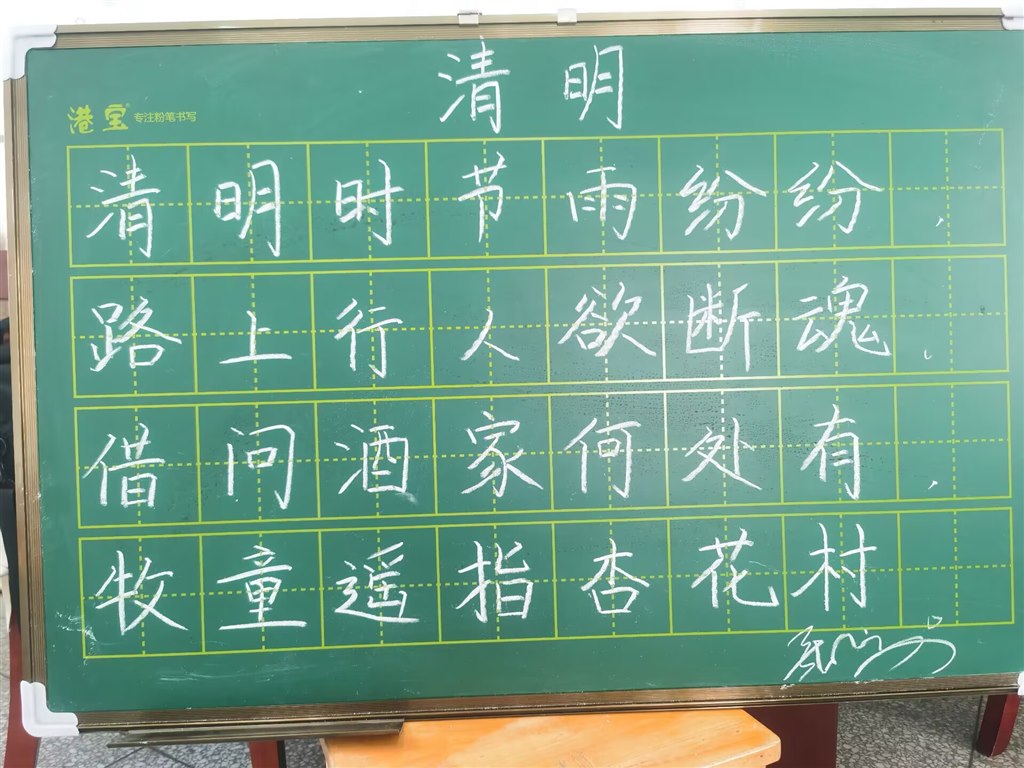 清明
港宝 专注粉笔书写
清明时节雨纷纷，
路上行人欲断魂。
借问酒家何处有，
牧童遥指杏花村